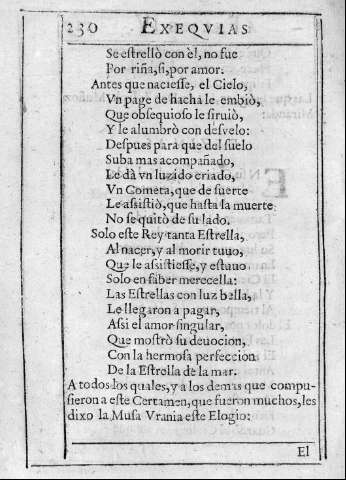 230 EXEQVIAS
Se estrellò con èl, no fue
Por riña, si, por amor:
Antes que naciesse, el Cielo,
Vn page de hacha le embiò,
Que obsequioso le siruiò,
Y le alumbrò con desvelo:
Despues para que del suelo
Suba mas acompañado,
Le dà vn luzido criado,
Vn Cometa, que de suerte
Le assistiò, que hasta la muerte
No se quitò de su lado.
Solo este Rey tanta Estrella,
Al nacer, y al morir tuuo,
Que le assistiesse, y estuuo
Solo en saber merecella:
Las Estrellas con luz bella,
Le llegaron a pagar,
Assi el amor singular,
Que mostrò su deuocion,
Con la hermosa perfeccion
De la Estrella de la mar.
A todos los quales, y a los demas que compu-
sieron a este Certamen, que fueron muchos, les
dixo la Musa Vrania este Elogio:
El